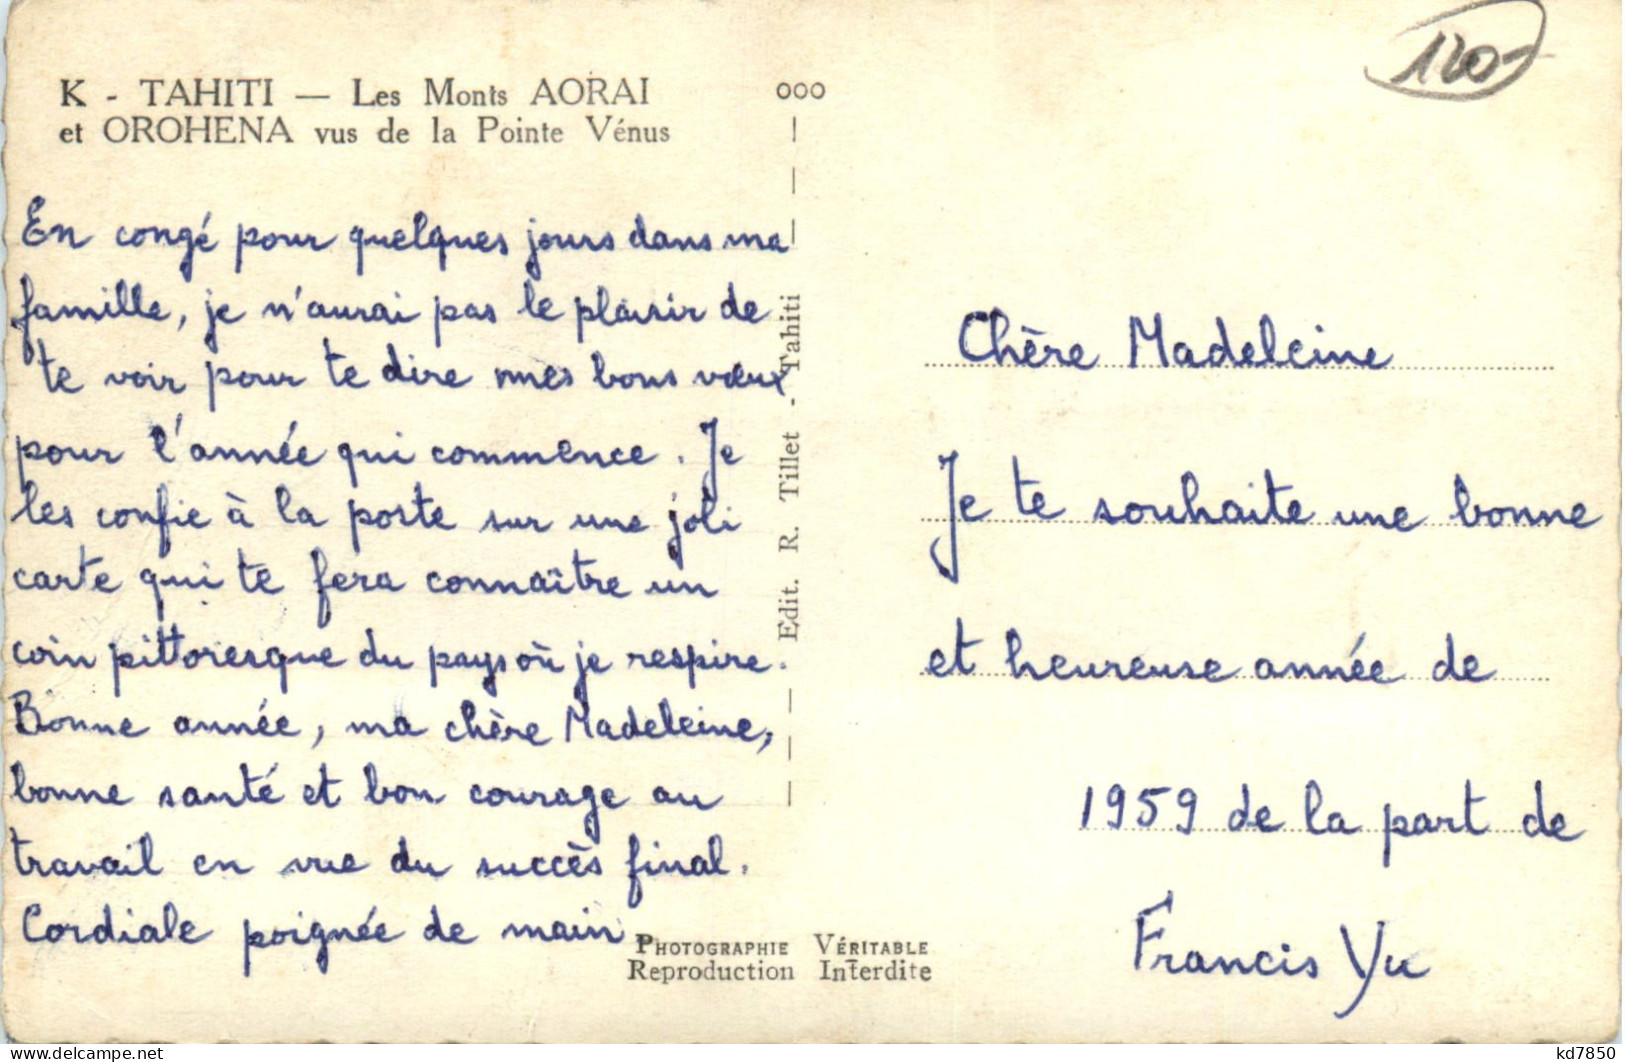 K - TAHITI — Les Monts AORAI
et OROHENA vus de la Pointe Vénus
En congé pour quelques jours dans ma
famille, je n'aurai pas le plaisir de
te voir pour te dire mes bons vœux
pour l'année qui commence. Je
les confie à la poste sur une joli
carte qui te fera connaître un
coin pittoresque du pays où je respire.
Bonne année, ma chère Madeleine,
bonne santé et bon courage au
travail en vue du succès final.
Cordiale poignée de main.
ooo
Edit. R. Tillet - Tahiti
PHOTOGRAPHIE VÉRITABLE
Reproduction Interdite
120-
Chère Madeleine
Je te souhaite une bonne
et heureuse année de
1959 de la part de
Francis Yu
www.delcampe.net
kd7850